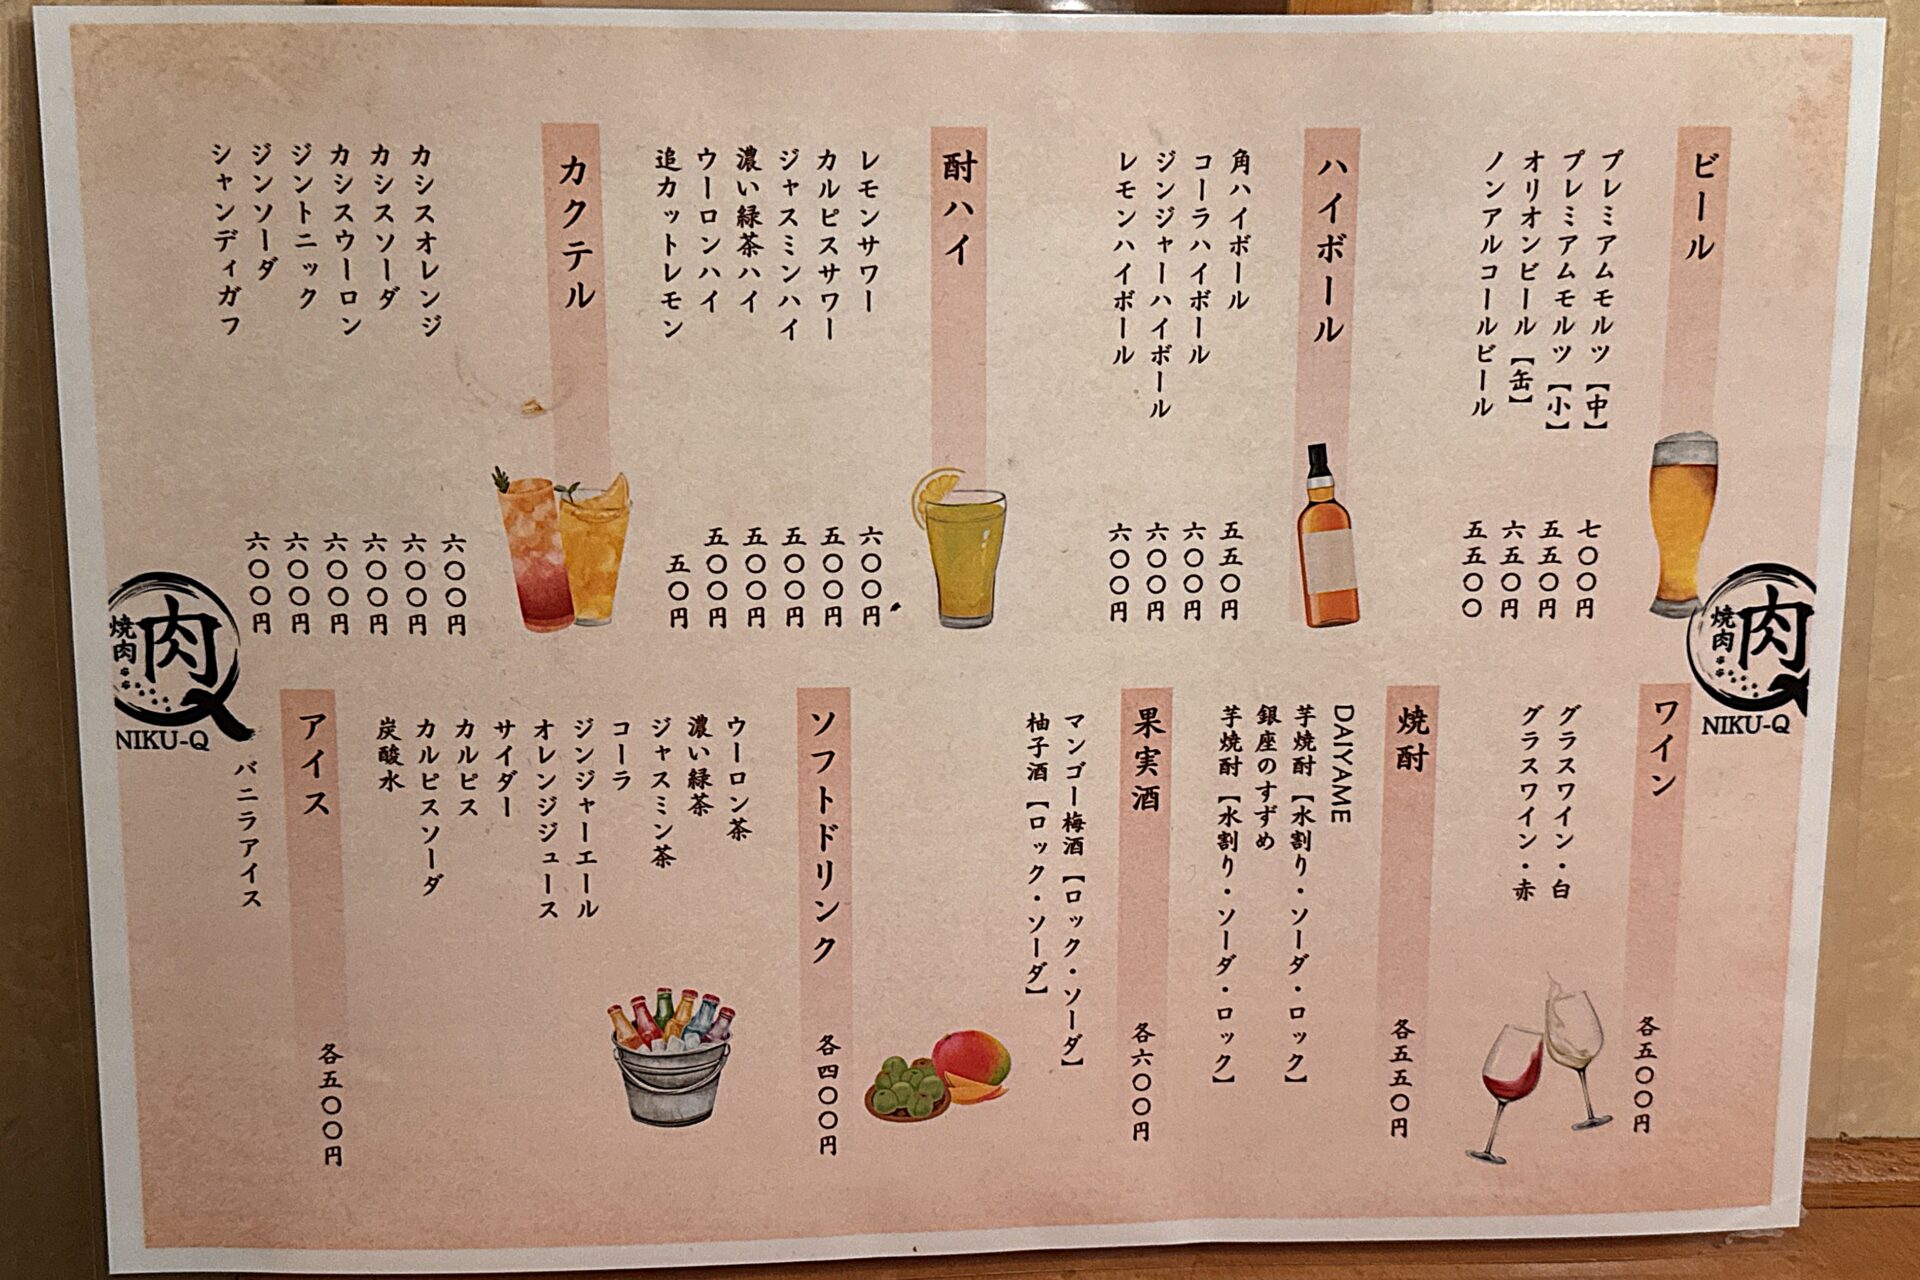 ビール
プレミアムモルツ【中】
七〇〇円
プレミアムモルツ【小】
五五〇円
オリオンビール【缶】
六五〇円
ノンアルコールビール
五五〇〇
ハイボール
角ハイボール
五五〇円
コーラハイボール
六〇〇円
ジンジャーハイボール
六〇〇円
レモンハイボール
六〇〇円
酎ハイ
レモンサワー
六〇〇円
カルピスサワー
五〇〇円
ジャスミンハイ
五〇〇円
濃い緑茶ハイ
五〇〇円
ウーロンハイ
五〇〇円
追カットレモン
五〇円
カクテル
カシスオレンジ
六〇〇円
カシスソーダ
六〇〇円
カシスウーロン
六〇〇円
ジントニック
六〇〇円
ジンソーダ
六〇〇円
シャンディガフ
六〇〇円
焼肉
肉
NIKU-Q
焼肉
肉
NIKU-Q
ワイン
各五〇〇円
グラスワイン・白
グラスワイン・赤
焼酎
各五五〇円
DAIYAME
芋焼酎【水割り・ソーダ・ロック】
銀座のすずめ
芋焼酎【水割り・ソーダ・ロック】
果実酒
各六〇〇円
マンゴー梅酒【ロック・ソーダ】
柚子酒【ロック・ソーダ】
ソフトドリンク
各四〇〇円
ウーロン茶
濃い緑茶
ジャスミン茶
コーラ
ジンジャーエール
オレンジジュース
サイダー
カルピス
カルピスソーダ
炭酸水
アイス
各五〇〇円
バニラアイス